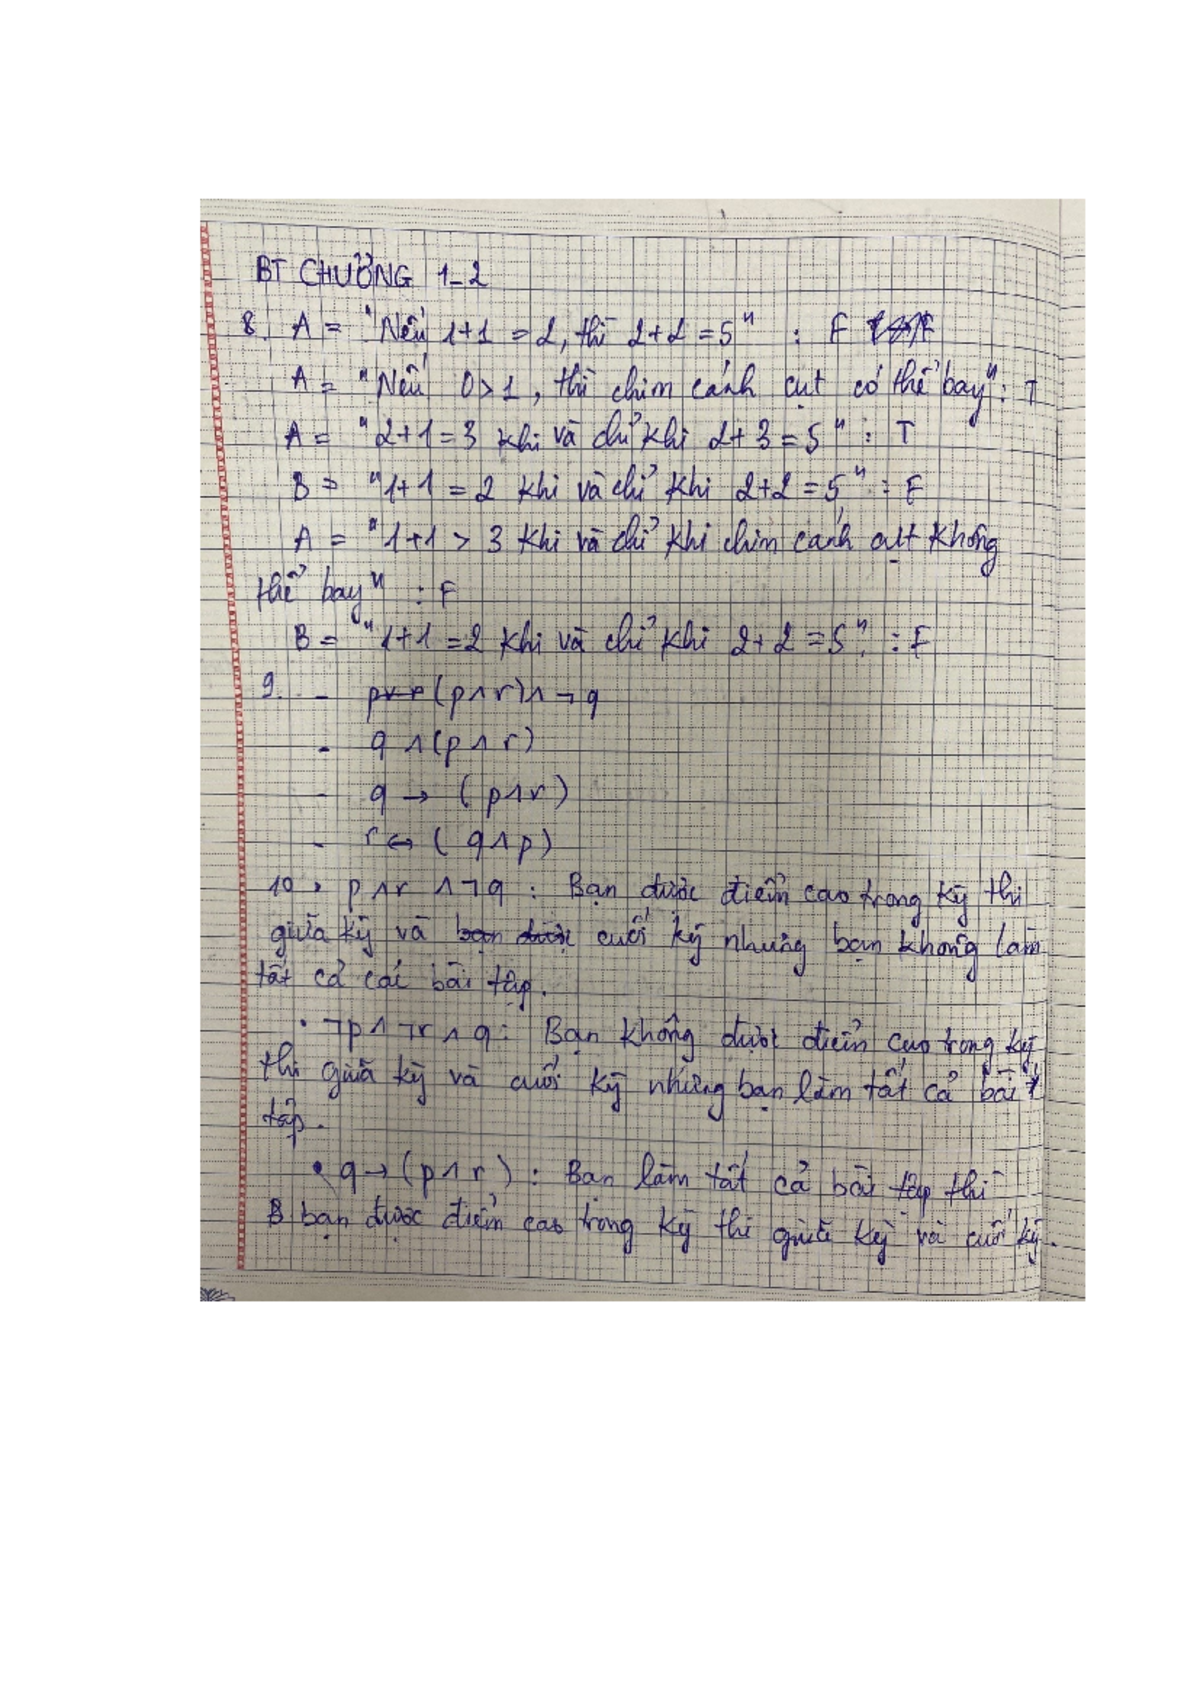 BT CHƯƠNG 1_2
8. A = "Nếu 1+1 = 2, thì 2+2 = 5" : F
A = "Nếu 0>1, thì chim cánh cụt có thể bay" : T
A = "2+1=3 khi và chỉ khi 2+3=5" : T
B = "1+1 = 2 khi và chỉ khi 2+2=5" : F
A = "1+1 > 3 khi và chỉ khi chim cánh cụt không
thể bay" : F
B = "1+1 =2 khi và chỉ khi 2+2 =5" : F
9. - (p∧r)∧¬q
- q ∧(p∧r)
- q → (p∧r)
- r ↔ (q∧p)
10. p∧r ∧¬q : Bạn được điểm cao trong kỳ thi
giữa kỳ và cuối kỳ nhưng bạn không làm
tất cả các bài tập.
• ¬p∧¬r∧q : Bạn không được điểm cao trong kỳ
thi giữa kỳ và cuối kỳ nhưng bạn làm tất cả bài t
tập.
• q→(p∧r) : Bạn làm tất cả bài tập thì
B bạn được điểm cao trong kỳ thi giữa kỳ và cuối kỳ.